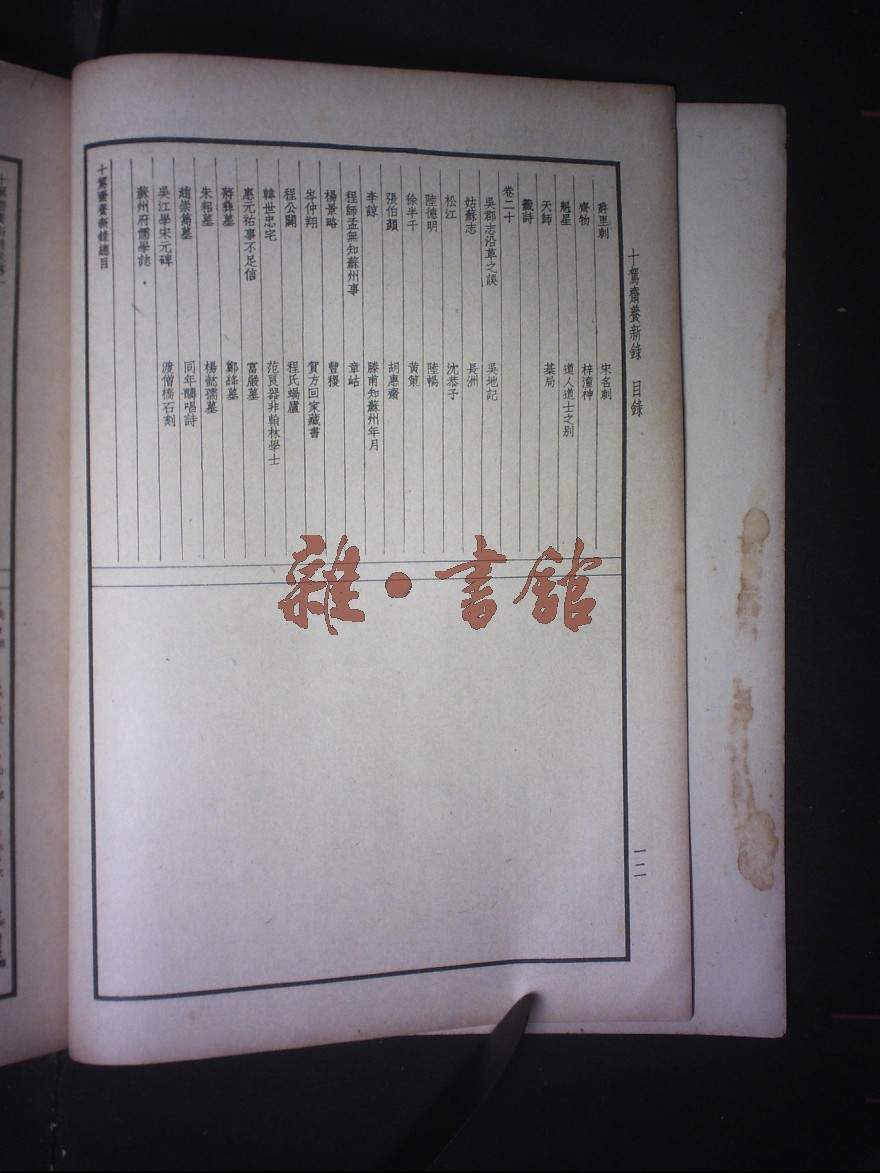 十駕齋養新錄 目錄
一二
爵里刺 宋名刺
齊物 梓潼神
魁星 道人道士之別
天師 棊局
籤詩
卷二十
吳郡志沿革之誤 吳地記
姑蘇志 長洲
松江 沈恭子
陸德明 陸暢
徐半千 黃策
張伯顏 胡惠齋
李諒 滕甫知蘇州年月
程師孟無知蘇州事 章岵
楊景略 豐稷
岑仲翔 賀方回家藏書
程公闢 程氏蝸廬
韓世忠宅 范良器非翰林學士
惠元祐事不足信 富嚴墓
薛彝墓 鄭絳墓
朱䎖墓 楊懿孺墓
趙崇雋墓 同年醻唱詩
吳江學宋元碑 渡僧橋石刻
蘇州府儒學誌
十駕齋養新錄總目
雜•書館